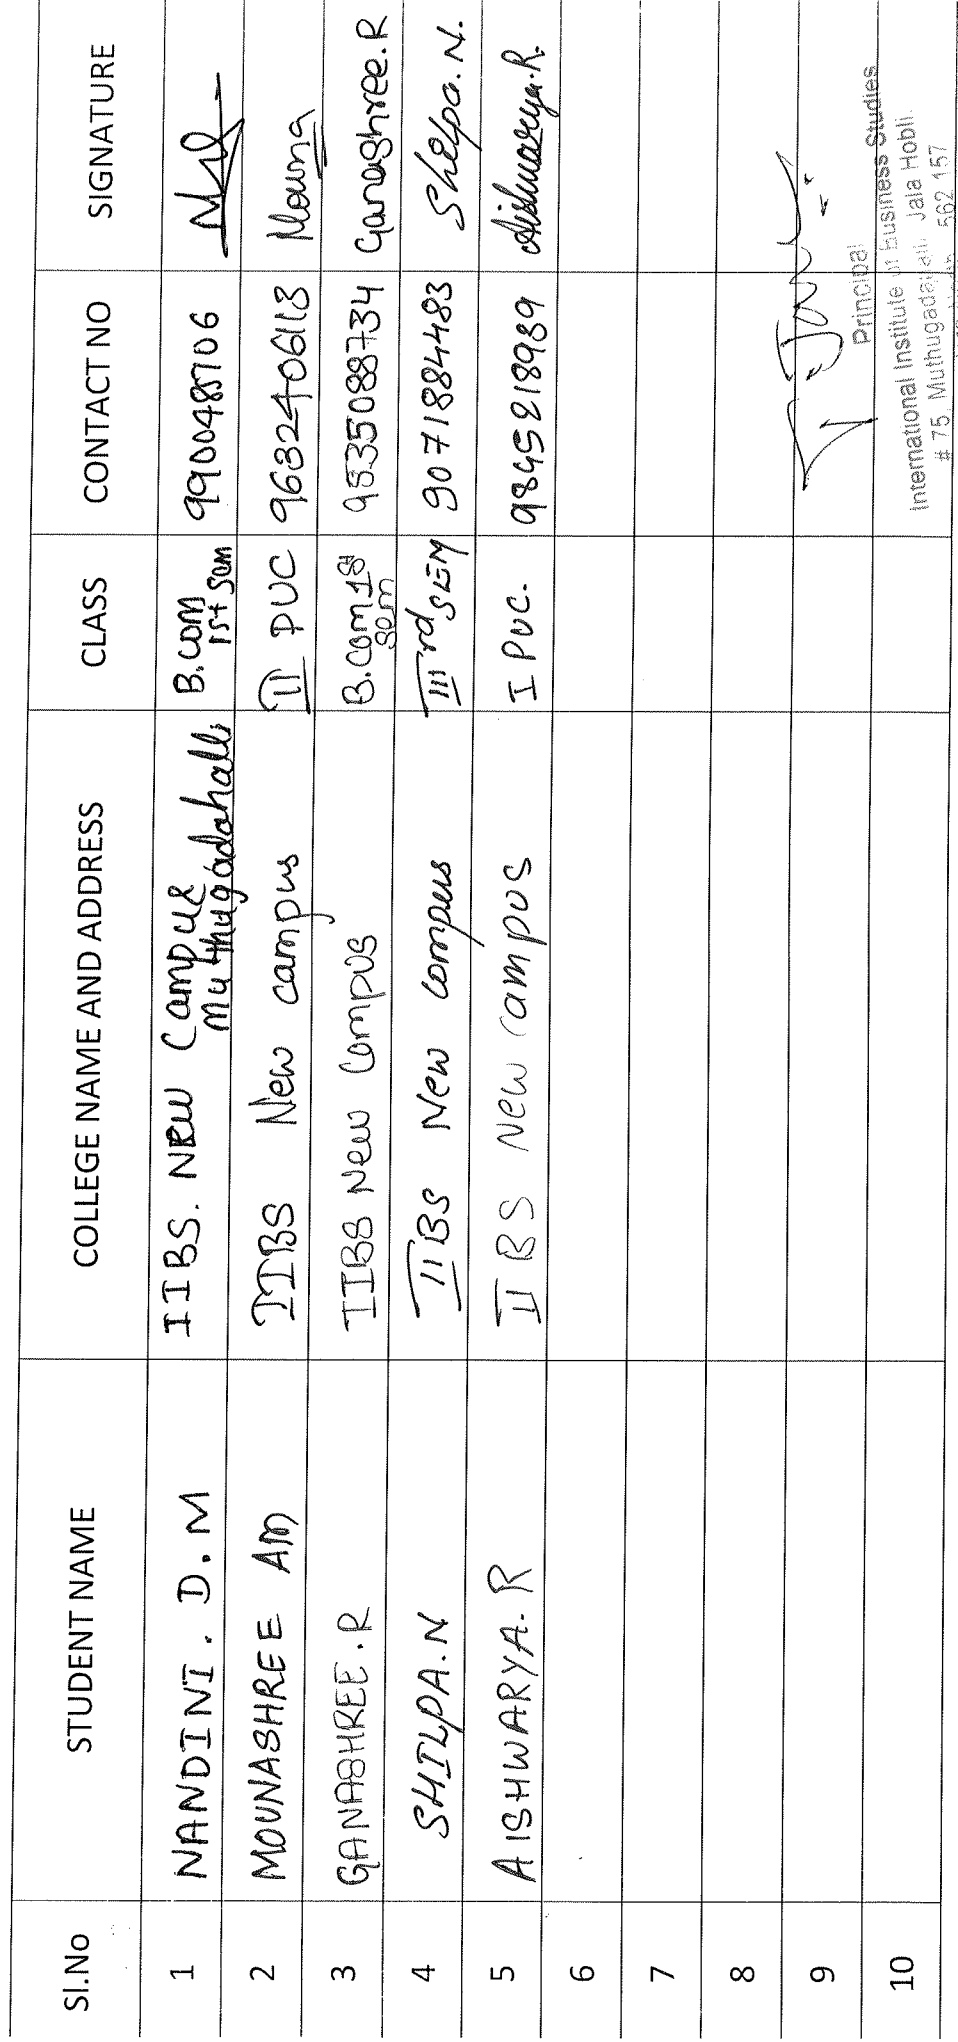 SI.No STUDENT NAME COLLEGE NAME AND ADDRESS CLASS CONTACT NO SIGNATURE
1 NANDINI. D.M IIBS. New Campus B.com 9900485706
Muthugadahalli 1st sem
2 MOUNASHREE AM IIBS New campus II PUC 9632406113 Mouna
3 GANASHREE.R IIBS New Compus B.Com 1st 9535088734 Ganashree.R
sem
4 SHILPA.N IIBS New Compus IIIrd SEM 9071884483 Shilpa.N.
5 AISHWARYA.R IIBS New Campus I PUC. 9845218989 Aishwarya.R.
6
7
8
9
10
Principal
International Institute of Business Studies
# 75, Muthugadahalli, Jala Hobli.
562 157